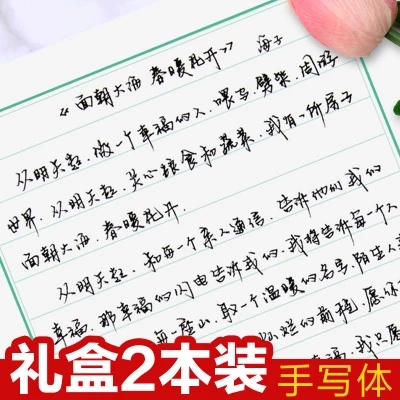 《面朝大海 春暖花开》 海子
从明天起，做一个幸福的人．喂马，劈柴，周游
世界．从明天起，关心粮食和蔬菜．我有一所房子
面朝大海，春暖花开．
从明天起，和每一个亲人通信．告诉他们我的
幸福．那幸福的闪电告诉我的．我将告诉每一个人
每一座山，取一个温暖的名字．陌生人
灿烂的前程，愿你
福，我只愿
礼盒2本装
手写体